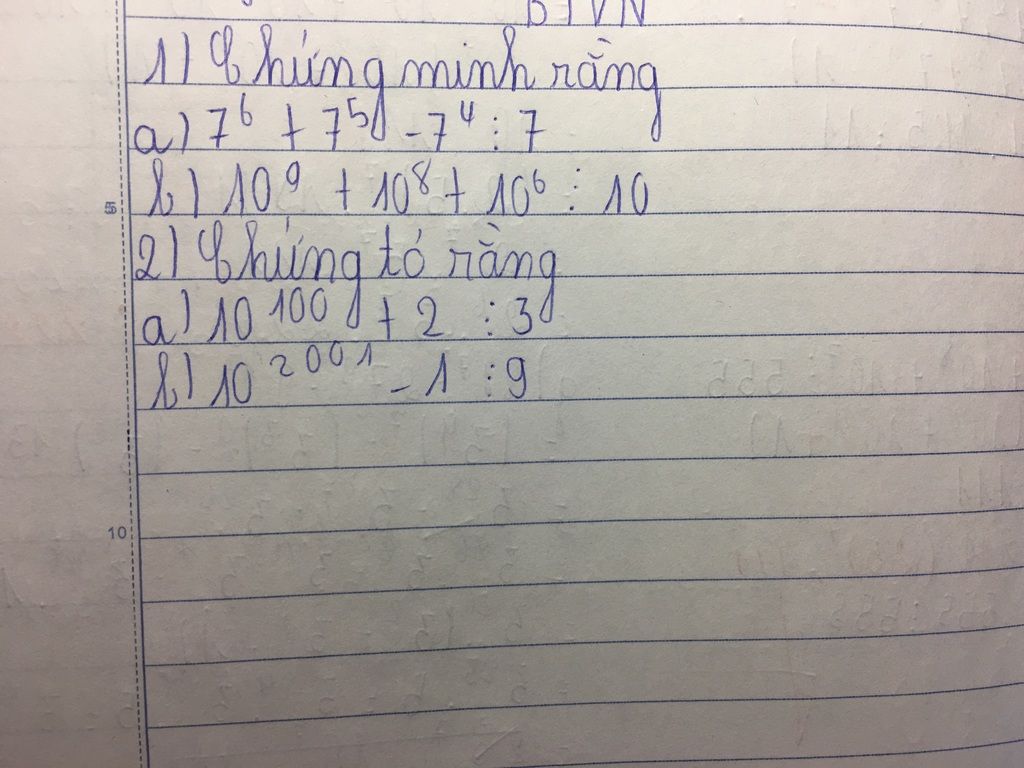 BTVN
1) Chứng minh rằng
a) 7⁶ + 7⁵ - 7⁴ ⋮ 7
b) 10⁹ + 10⁸ + 10⁶ ⋮ 10
5
2) Chứng tỏ rằng
a) 10¹⁰⁰ + 2 ⋮ 3
b) 10²⁰⁰¹ - 1 ⋮ 9
10